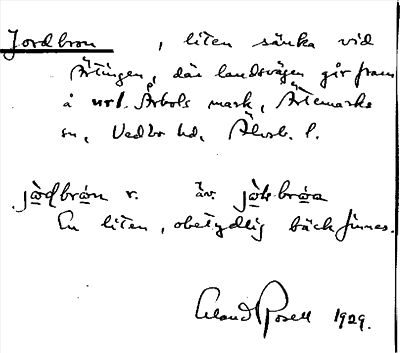 Jordbron , liten sänka vid
Ärtingen, där landsvägen går fram
å utl. Årbols mark, Ärtemarks
sn, Vedbo hd, Älvsb. l.
jo̱rdbrón v. äv. jo̱rbróa
En liten, obetydlig bäck finnes.
Erland Rosell 1929.